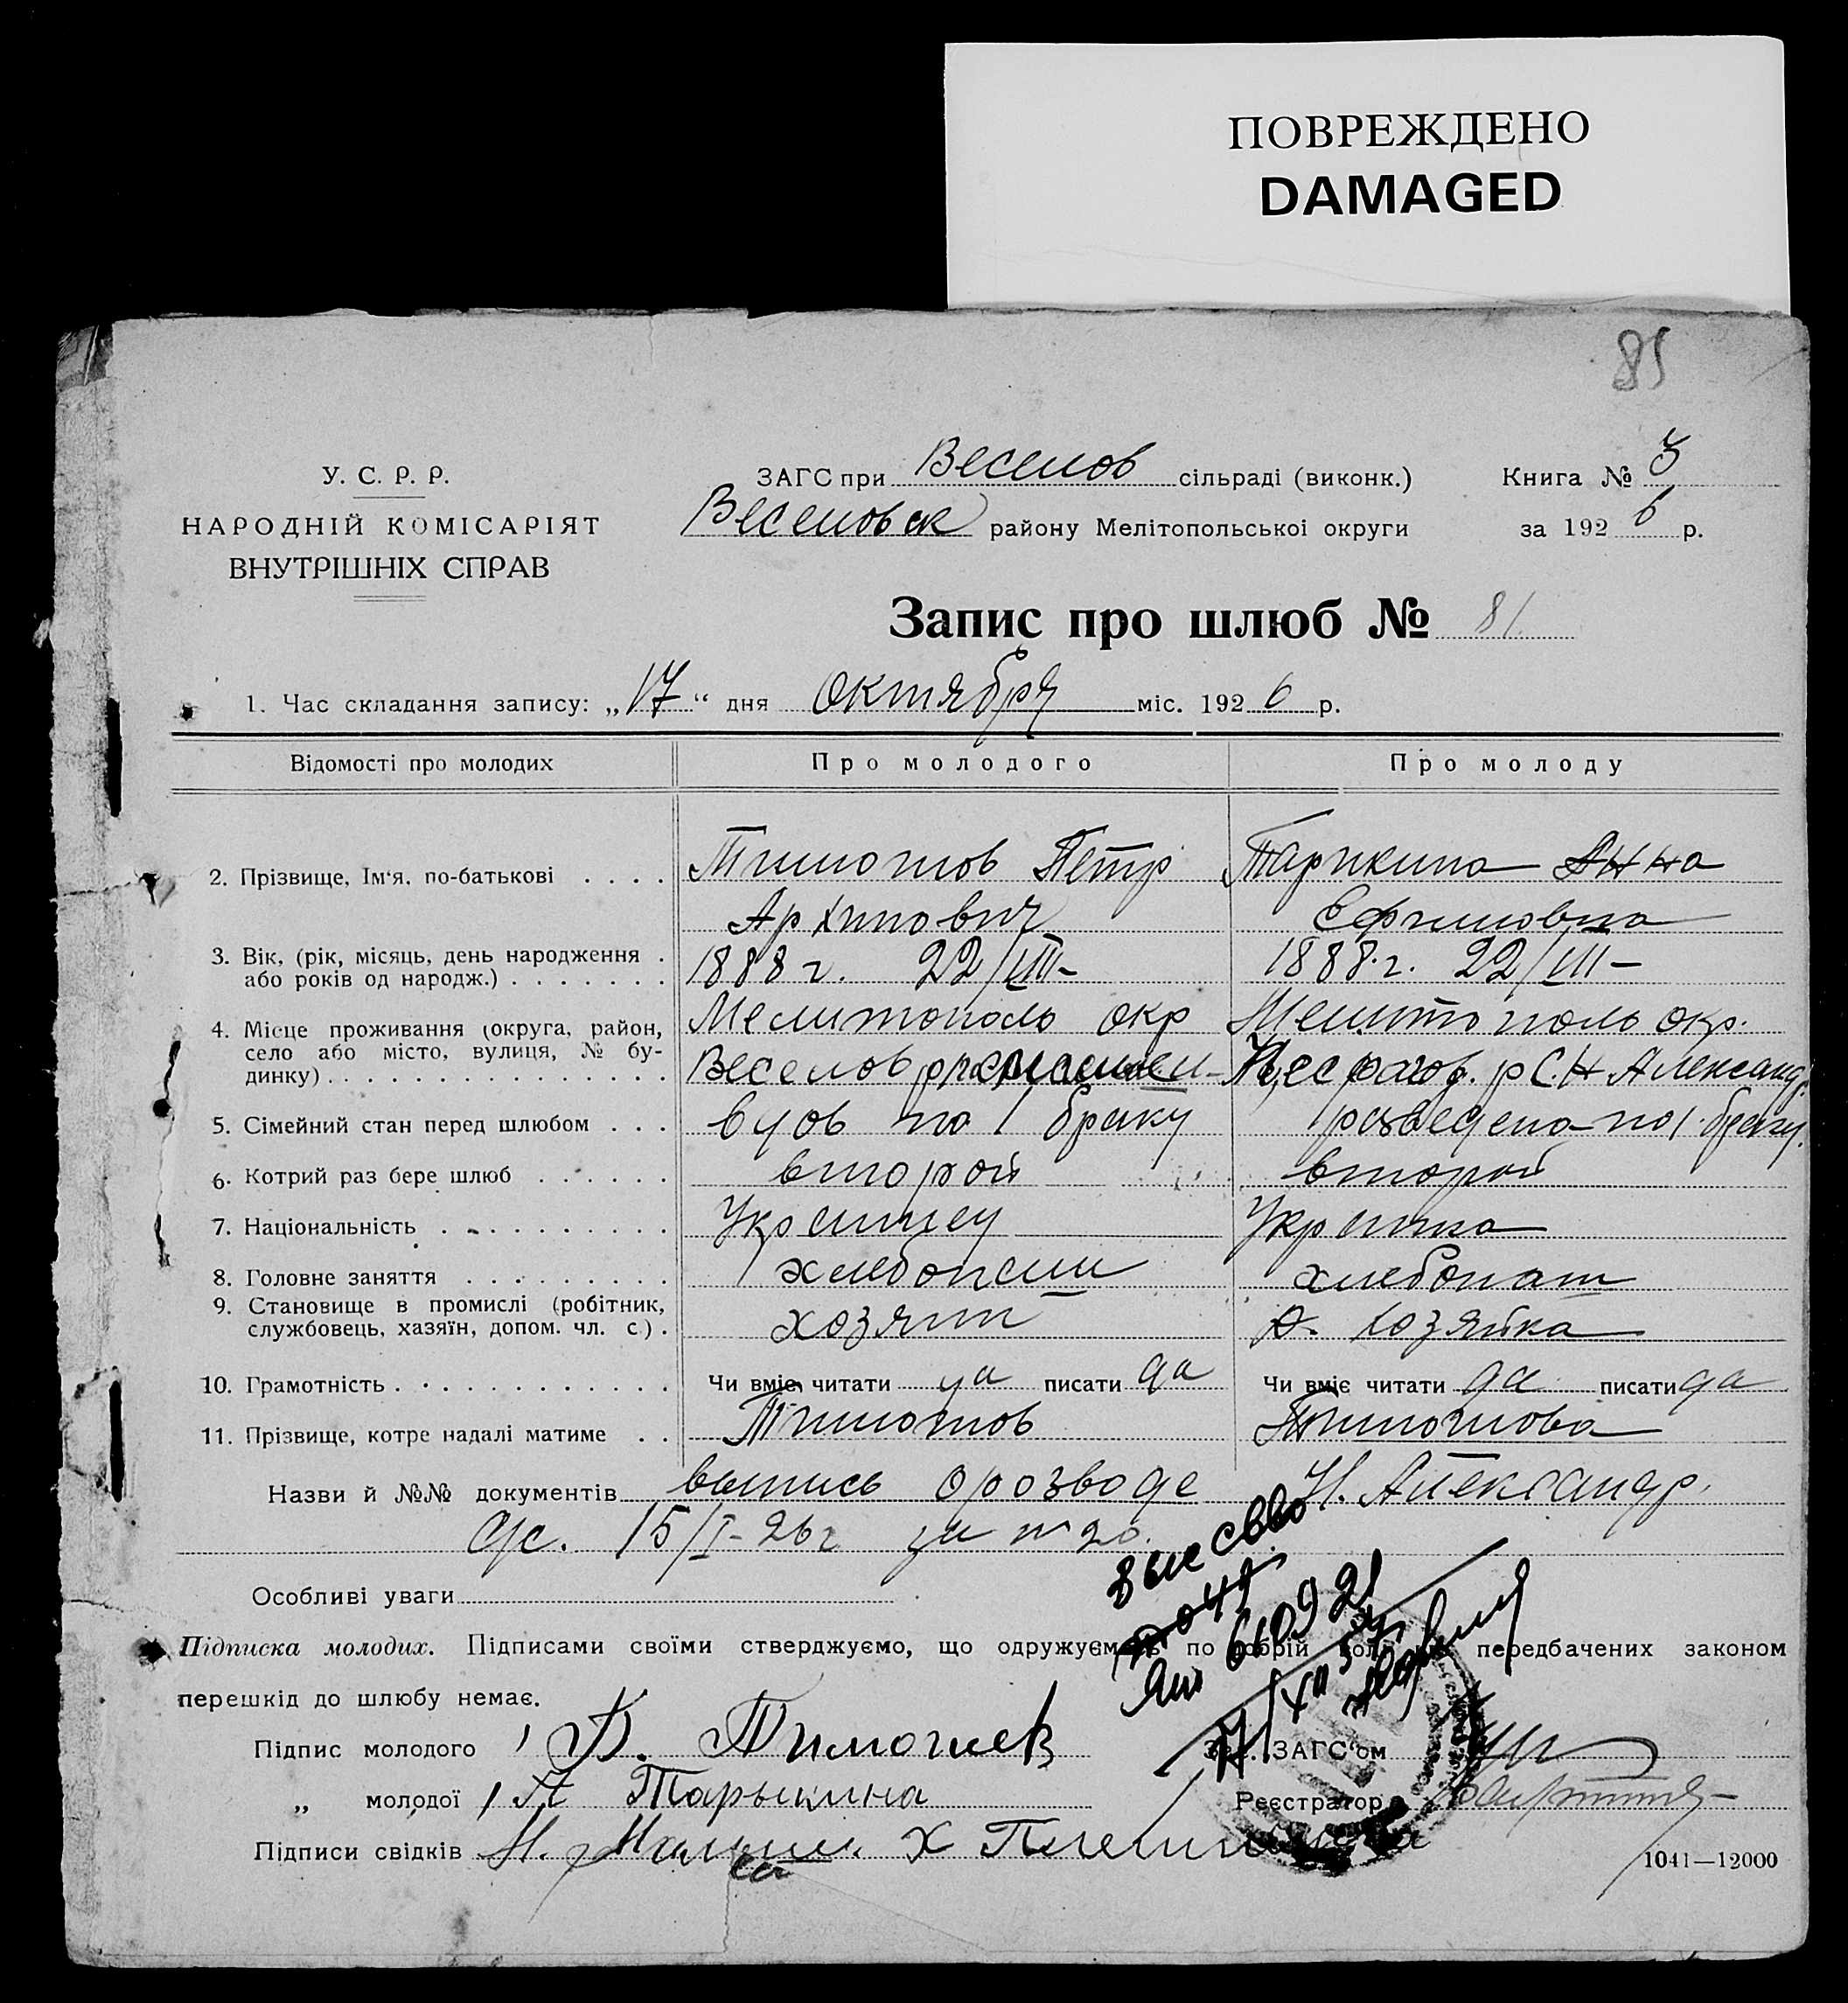 ПОВРЕЖДЕНО
DAMAGED
85
У. С. Р. Р.
НАРОДНІЙ КОМІСАРІЯТ
ВНУТРІШНІХ СПРАВ
ЗАГС при Веселов сільраді (виконк.)
Веселовск району Мелітопольської округи
Книга № 3
за 1926 р.
Запис про шлюб № 81
1. Час складання запису: „17“ дня октября міс. 1926 р.
Відомості про молодих
Про молодого
Про молоду
2. Прізвище, Ім'я, по-батькові . . . .
Тимошов Петр
Архипович
Тарикина Анна
Ефимовна
3. Вік, (рік, місяць, день народження .
або років од народж.) . . . . . . .
1888 г. 22/III-
1888.г. 22/III-
4. Місце проживання (округа, район,
село або місто, вулиця, № бу-
динку) . . . . . . . . . . . . . . .
Мелитополь окр
Веселов
Мелитополь окр.
р С. Н Александр.
5. Сімейний стан перед шлюбом . . .
вдов по 1 браку
розведено по 1. браку.
6. Котрий раз бере шлюб . . . . . .
второй
второй
7. Національність . . . . . . . . . .
Украинец
Укр
8. Головне заняття . . . . . . . . .
хлебопаш
хлебопаш
9. Становище в промислі (робітник,
службовець, хазяїн, допом. чл. с.) .
хозяин
хозяйка
10. Грамотність . . . . . . . . . . . .
Чи вміє читати да писати да
Чи вміє читати да писати да
11. Прізвище, котре надалі матиме . .
Тимошов
Тимошова
Назви й №№ документів выпись о розводе Н. Александр.
15/I-26 г за № 20.
Особливі уваги
Підписка молодих. Підписами своїми стверджуємо, що одружуємось по добрій волі передбачених законом
перешкід до шлюбу немає.
Підпис молодого Тимошев
„ молодої А Тарыкина
Підписи свідків Н. Х
ЗАГС'ом
Реєстратор
1041—12000